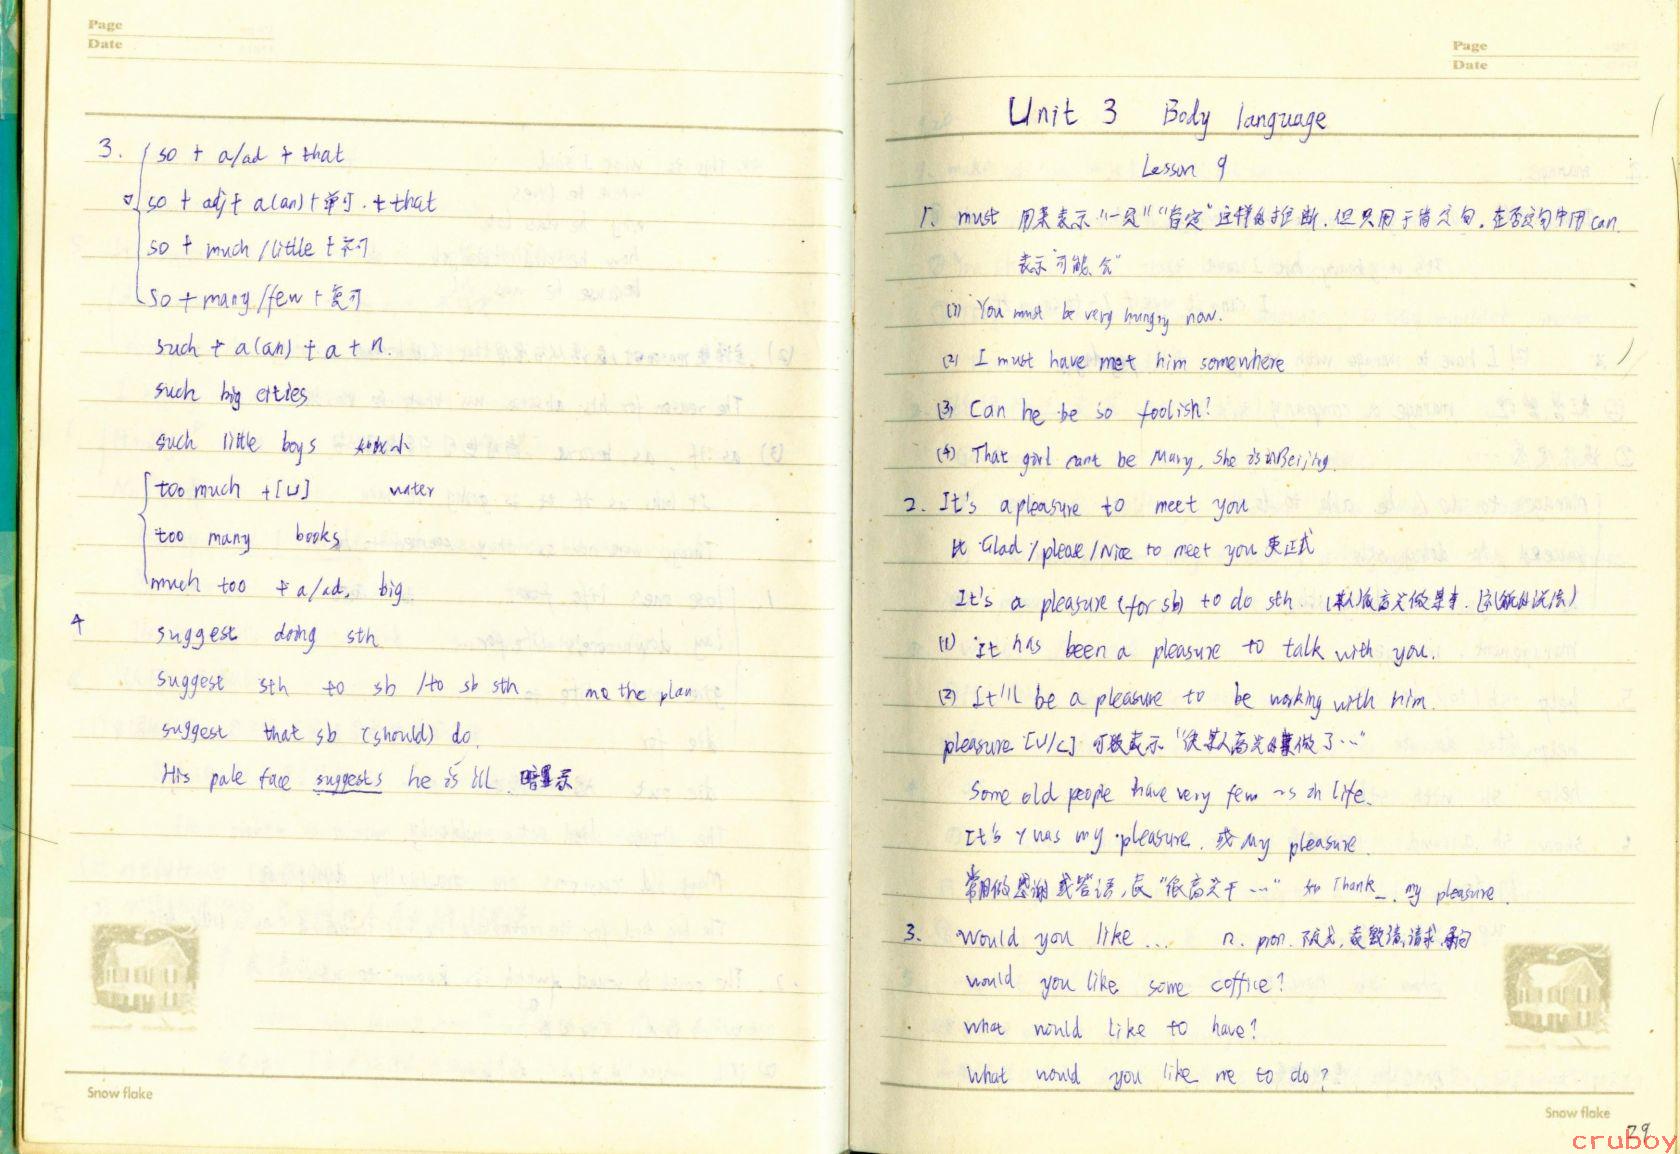 Page
Date
3. so + a/ad + that
so + adj + a(an) + 单可 + that
so + much / little + 不可
so + many / few + 复可
such + a(an) + a + n.
such big cities
such little boys 小
too much + [U] water
too many books
much too + a/ad. big
4 suggest doing sth
suggest sth to sb / to sb sth me the plan
suggest that sb (should) do.
His pale face suggests he is ill. 暗示
Snow flake
Page
Date
Unit 3 Body language
Lesson 9
1. must 用来表示“一定”“肯定”这样的推断. 但只用于肯定句. 在否定句中用 can.
表示可能会”
(1) You must be very hungry now.
(2) I must have met him somewhere
(3) Can he be so foolish?
(4) That girl cant be Mary, she is in Beijing.
2. It's a pleasure to meet you
比 Glad / please / Nice to meet you 更正式
It's a pleasure (for sb) to do sth. (某人)很高兴做某事.
(1) It has been a pleasure to talk with you.
(2) It'll be a pleasure to be working with him.
pleasure [U/C] 可数表示 “使某人高兴的事
Some old people have very few ~s in life.
It's / was my pleasure. 或 My pleasure.
常用做感谢或答语, 表 “很高兴干…” Thank _. my pleasure.
3. Would you like ... n. pron. 不定式, 表邀请, 请求
would you like some coffice?
What would like to have?
What would you like me to do?
Snow flake
79
cruboy